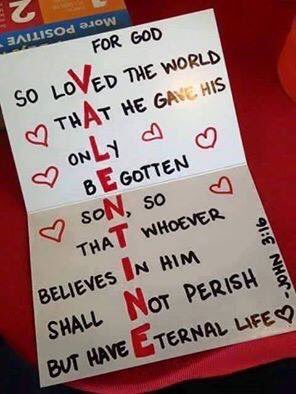 2
More POSITIVE
FOR GOD
SO LOVED THE WORLD
THAT HE GAVE HIS
ONLY
BEGOTTEN
SON, SO
THAT WHOEVER
BELIEVES IN HIM
SHALL NOT PERISH
BUT HAVE ETERNAL LIFE♡
- JOHN 3:16